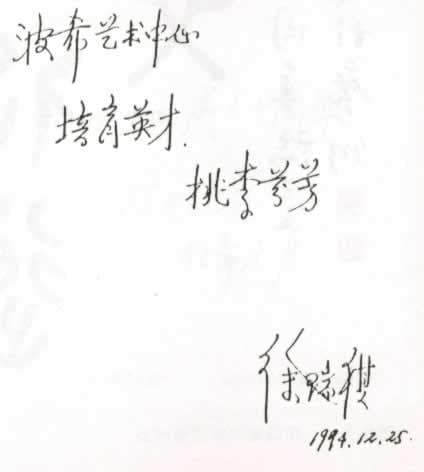 波希艺术中心
培育英才.
桃李芬芳
徐
1994.12.25.